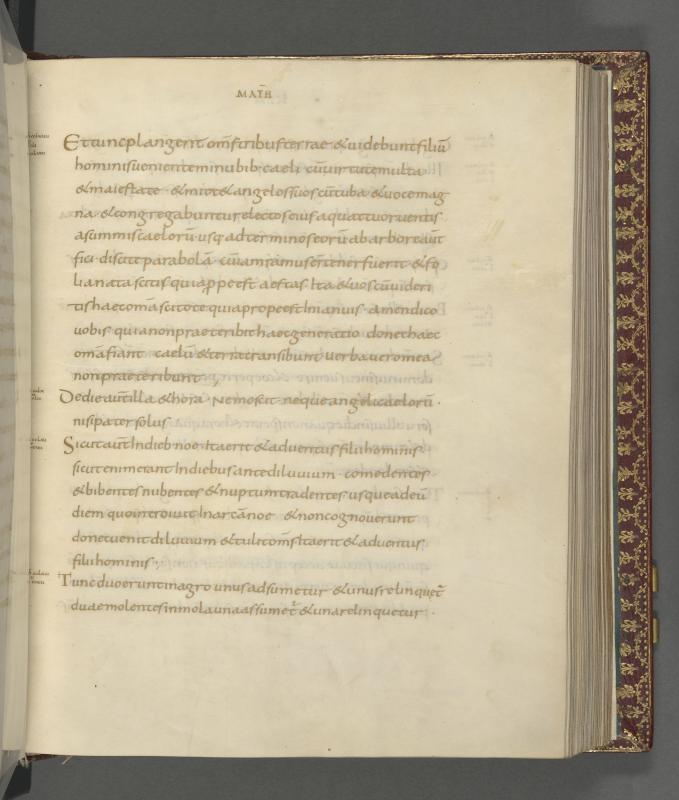 MATH
Et tunc plangent om̅s tribus terrae & uidebunt filiu̅
hominis uenientem in nubib· caeli cu̅ uirtute multa
& maiestate · & mittet angelos suos cu̅ tuba & uoce mag
na · & congregabuntur electos eius a quattuor uentis
a summis caeloru̅ usq· ad terminos eoru̅ ab arbore aut̅
fici discite parabola̅ cu̅ iam ramus eius tener fuerit & fo
lia nata scitis quia prope est aestas Ita & uos cu̅ uideri
tis haec om̅a scitote quia prope est In ianuis · amen dico
uobis quia non praeteribit haec generatio donec haec
om̅a fiant caelu̅ & terra transibunt uerba uero mea
non praeteribunt
De die aut̅ illa & hora Nemo scit neque angeli caeloru̅ ·
nisi pater solus
Sicut aut̅ In dieb· noe Ita erit & aduentus filii hominis
sicut enim erant In diebus ante diluuium comedentes
& bibentes nubentes & nuptum tradentes usque ad eu̅
diem quo introiuit In arca̅ noe & non cognouerunt
donec uenit diluuium & tulit om̅s Ita erit & aduentus
filii hominis ·
Tunc duo erunt in agro unus adsumetur & unus relinquet̅
duae molentes in mola una assumet̅ & una relinquetur ·